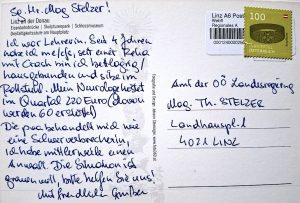 Linz an der Donau
Eisenbahnbrücke | Skulpturenpark | Schlossmuseum
Dreifaltigkeitssäule am Hauptplatz
S.g. Hr. Mag Stelzer!
Ich war Lehrerin. Seit 4 Jahren
habe ich me/cfs, seit einer Reha
mit Crash bin ich bettlägrig/
hausgebunden und sitze im
Rollstuhl. Mein Neurologe kostet
im Quartal 220 Euro (davon
werden 60 erstattet)
Die pva behandelt mich wie
eine Schwerverbrecherin,
ich habe mittlerweile einen
Anwalt. Die Situation ist
grauenvoll, bitte helfen Sie uns!
Mit freundlichen Grüßen
Linz A6 Post
Regionales A
100
Amt der OÖ Landesregierung
Mag. Th. STELZER
Landhauspl. 1
4021 LINZ